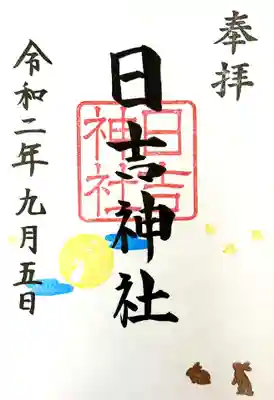 奉拝
日吉神社
日吉神社
令和二年九月五日